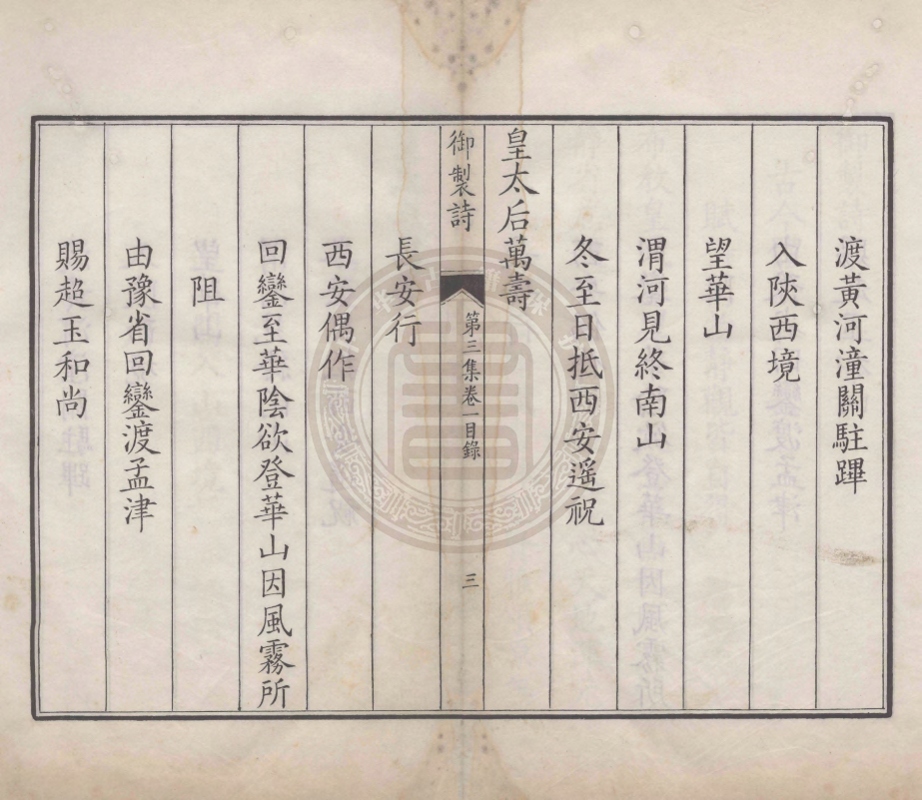 渡黃河潼關駐蹕
入陝西境
望華山
渭河見終南山
冬至日抵西安遥祝
皇太后萬壽
御製詩
第三集卷一目錄
三
長安行
西安偶作
回鑾至華陰欲登華山因風霧所
阻
由豫省回鑾渡孟津
賜超玉和尚